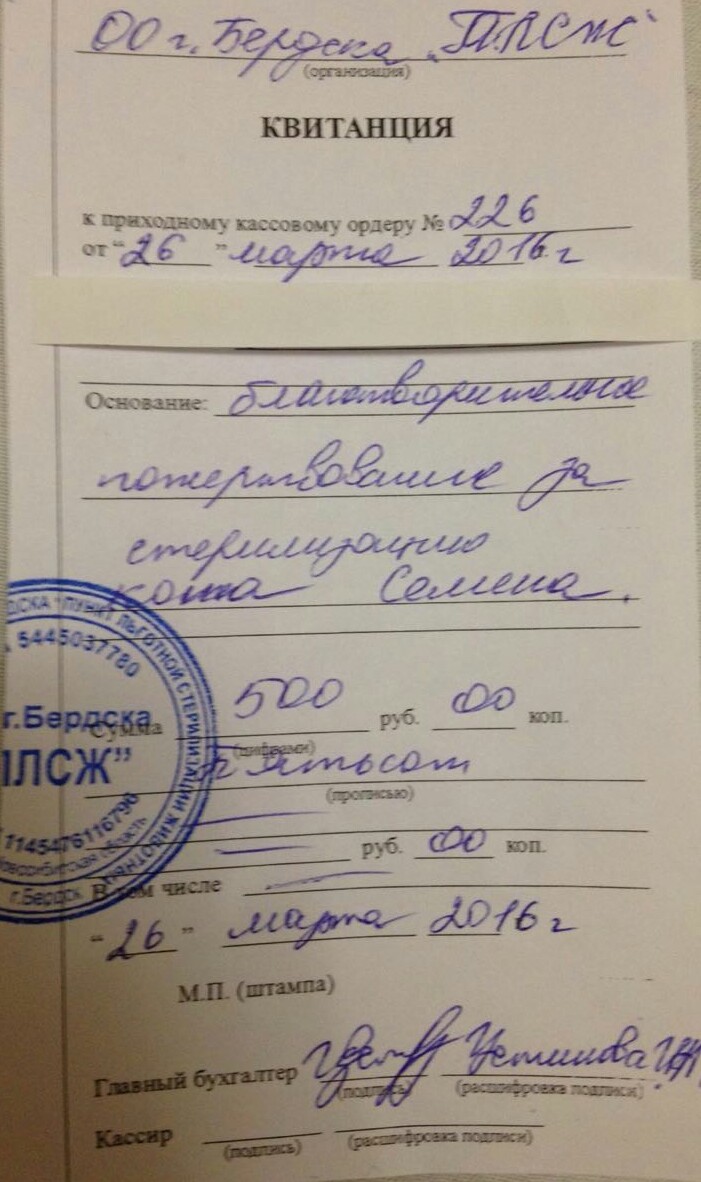 ОО г. Бердска „ПЛСЖ“
(организация)
КВИТАНЦИЯ
к приходному кассовому ордеру № 226
от “26” марта 2016 г
Основание: благотворительное
пожертвование за
стерилизацию
кота Семена.
Сумма 500 руб. 00 коп.
(цифрами)
пятьсот
(прописью)
руб. 00 коп.
В том числе
“26” марта 2016 г
М.П. (штампа)
Главный бухгалтер Устинова
(подпись) (расшифровка подписи)
Кассир
(подпись) (расшифровка подписи)
"ПУНКТ ЛЬГОТНОЙ СТЕРИЛИЗАЦИИ ЖИВОТНЫХ
5445037780
г.Бердска
ПЛСЖ"
1145476116796
Новосибирская область
г.Бердск